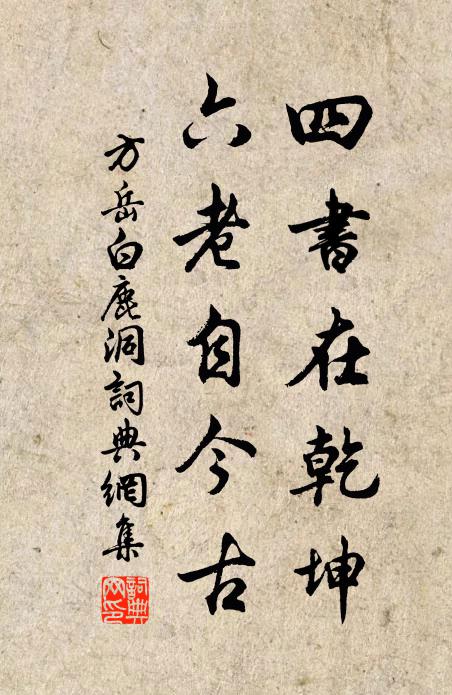 四書在乾坤
六老自今古
方岳白鹿洞詞典網集
詞典網印